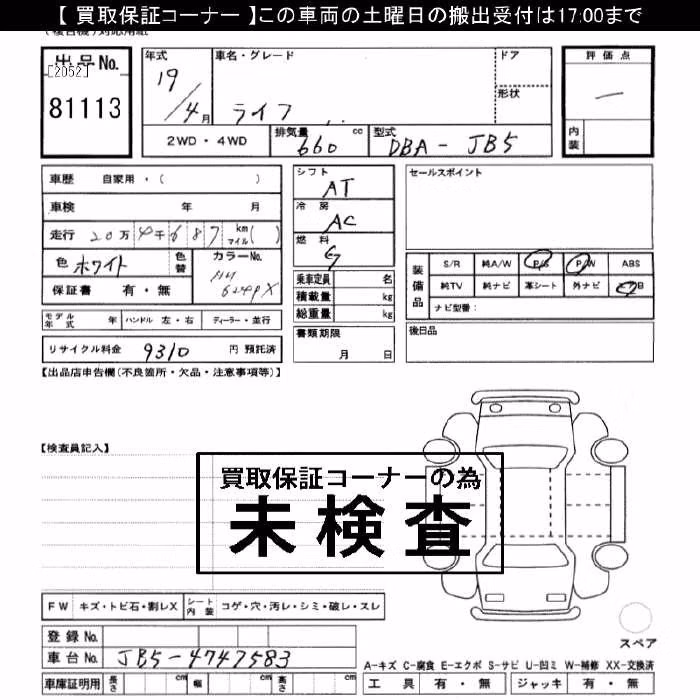 【 買取保証コーナー 】この車両の土曜日の搬出受付は17:00まで
出品No.
[2052]
81113
年式 19/4月
車名・グレード
ライフ
ドア
形状
評価点
一
内装
2WD・4WD
排気量 660 cc
型式 DBA-JB5
車歴 自家用・( )
車検 年 月
走行 20万4千687 km マイル( )
色 ホワイト 色替
カラーNo.
NH624PX
保証書 有・無
シフト
AT
冷房
AC
燃料
G
乗車定員 名
積載量 kg
総重量 kg
書類期限
月 日
セールスポイント
装備品
S/R 純A/W P/S P/W ABS
純TV 純ナビ 革シート 外ナビ
ナビ型番:
後日品
モデル年式 年 ハンドル 左・右 ディーラー・並行
リサイクル料金 9310 円 預託済
【出品店申告欄(不良箇所・欠品・注意事項等)】
【検査員記入】
買取保証コーナーの為
未検査
FW キズ・トビ石・割レX シート内装 コゲ・穴・汚レ・シミ・破レ・スレ
登録No.
車台No. JB5-4747583
車庫証明用 長さ cm 幅 cm 高さ cm
スペア
A-キズ C-腐食 E-エクボ S-サビ U-凹ミ W-補修 XX-交換済
工具 有・無 ジャッキ 有・無